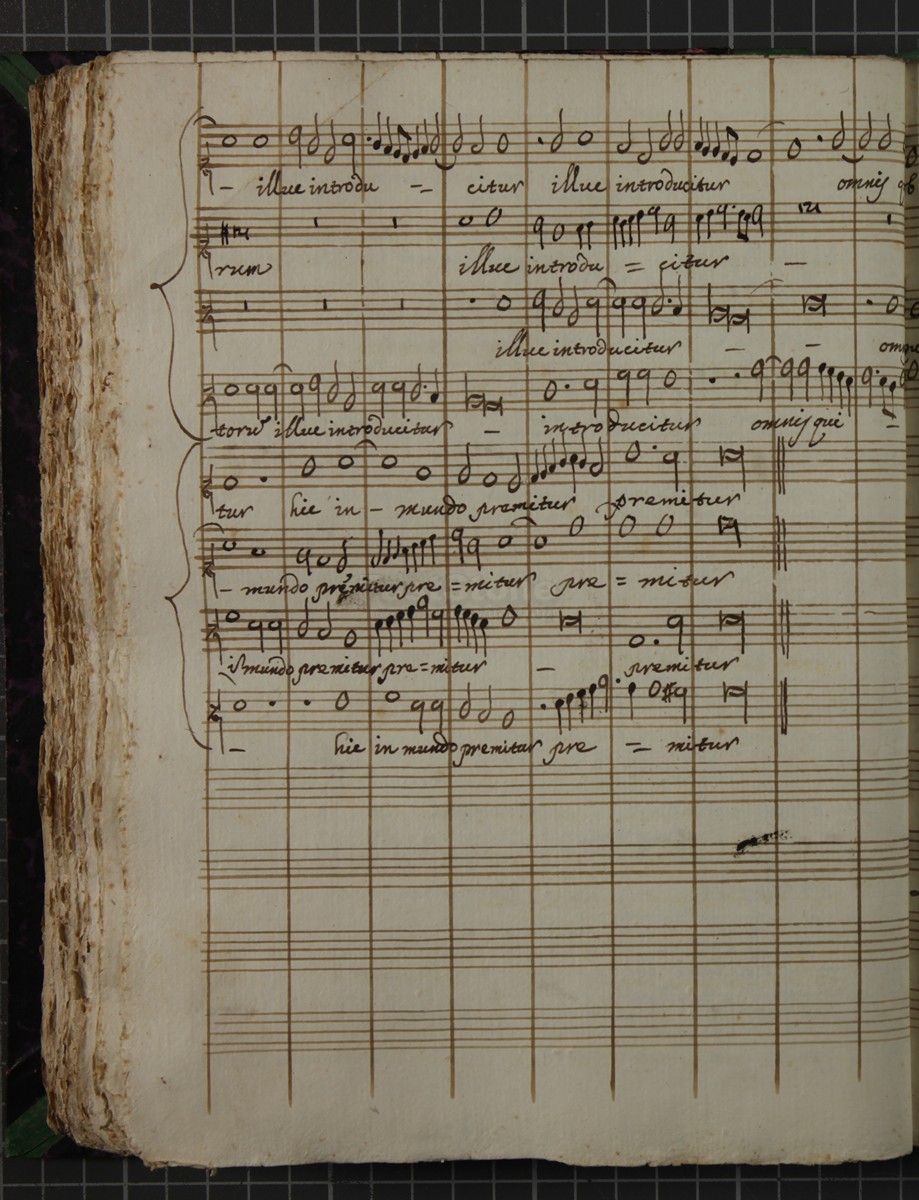 – illuc introdu -= citur illuc introducitur omnis
rum illuc introdu = citur –
illuc introducitur – –
toru illuc introducitur – introducitur omnis qui –
tur hic in – mundo premitur premitur
– mundo premitur pre = mitur pre = mitur
mundo premitur pre = mitur – premitur
– hic in mundo premitur pre = mitur